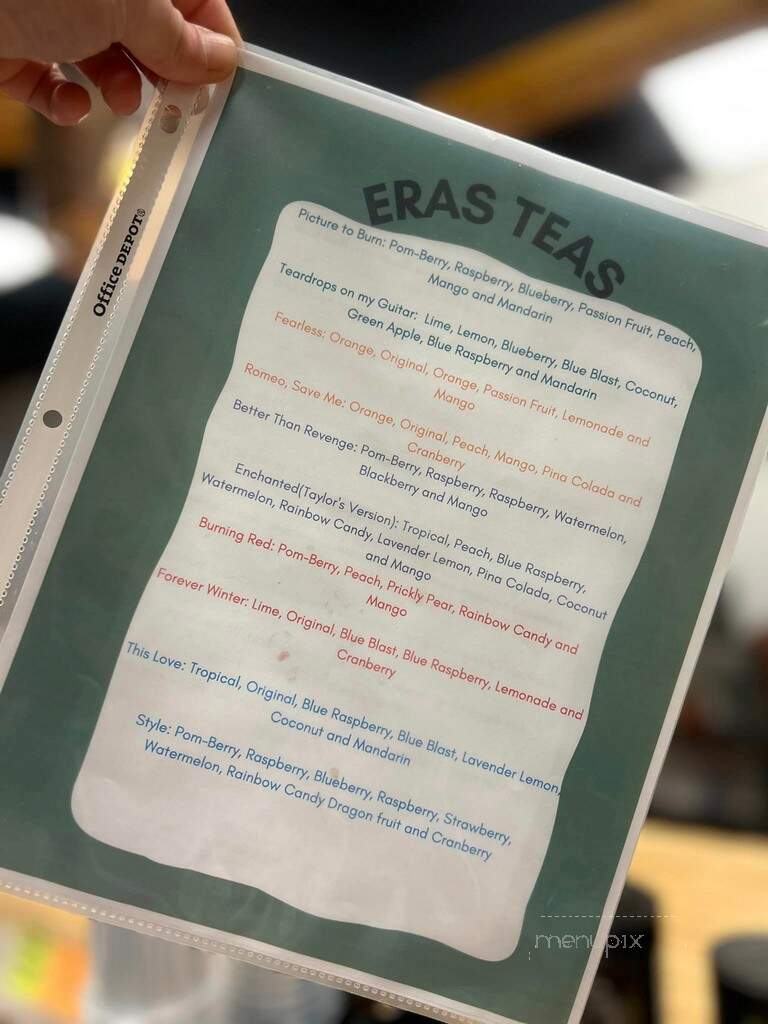 Office DEPOT®
ERAS TEAS
Picture to Burn: Pom-Berry, Raspberry, Blueberry, Passion Fruit, Peach,
Mango and Mandarin
Teardrops on my Guitar: Lime, Lemon, Blueberry, Blue Blast, Coconut,
Green Apple, Blue Raspberry and Mandarin
Fearless: Orange, Original, Orange, Passion Fruit, Lemonade and
Mango
Romeo, Save Me: Orange, Original, Peach, Mango, Pina Colada and
Cranberry
Better Than Revenge: Pom-Berry, Raspberry, Raspberry, Watermelon,
Blackberry and Mango
Enchanted(Taylor's Version): Tropical, Peach, Blue Raspberry,
Watermelon, Rainbow Candy, Lavender Lemon, Pina Colada, Coconut
and Mango
Burning Red: Pom-Berry, Peach, Prickly Pear, Rainbow Candy and
Mango
Forever Winter: Lime, Original, Blue Blast, Blue Raspberry, Lemonade and
Cranberry
This Love: Tropical, Original, Blue Raspberry, Blue Blast, Lavender Lemon,
Coconut and Mandarin
Style: Pom-Berry, Raspberry, Blueberry, Raspberry, Strawberry,
Watermelon, Rainbow Candy Dragon fruit and Cranberry
menupix